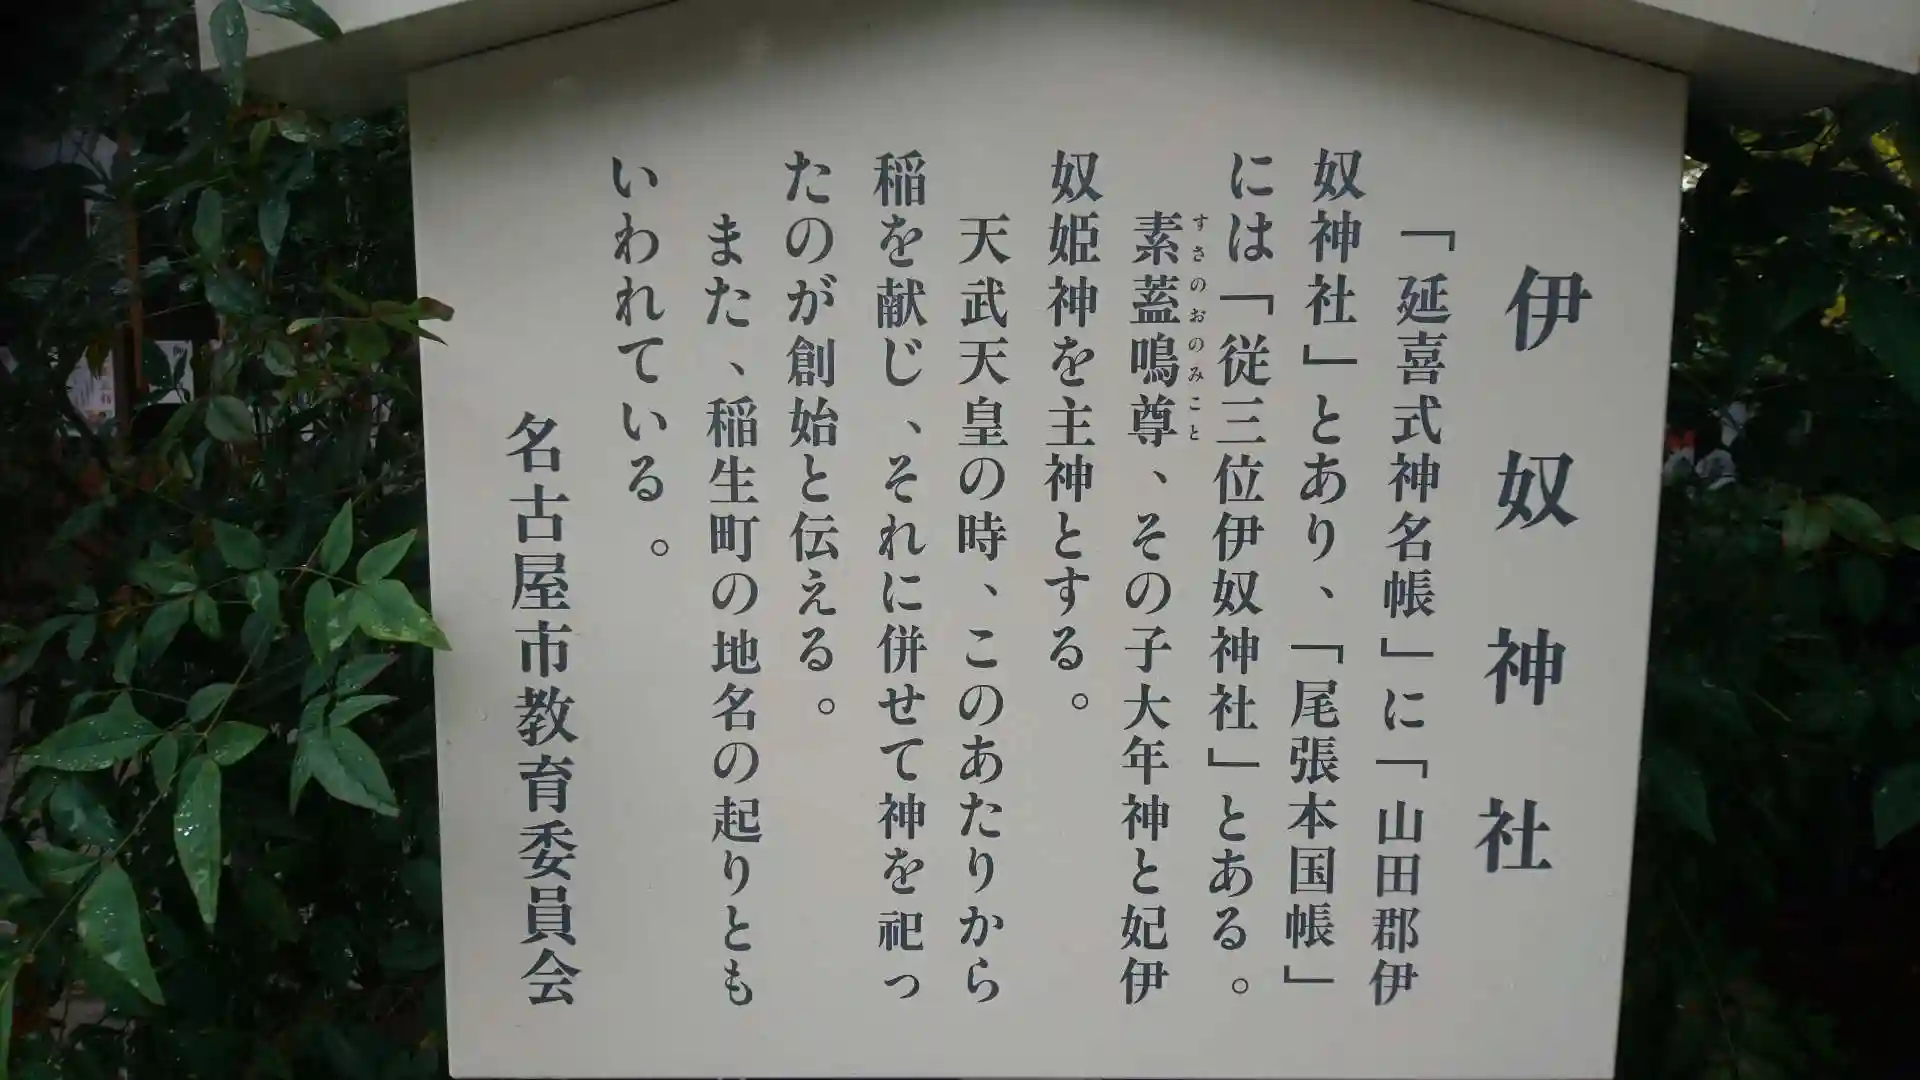 伊奴神社
「延喜式神名帳」に「山田郡伊
奴神社」とあり、「尾張本国帳」
には「従三位伊奴神社」とある。
素蓋鳴尊、その子大年神と妃伊
すさのおのみこと
奴姫神を主神とする。
天武天皇の時、このあたりから
稲を献じ、それに併せて神を祀っ
たのが創始と伝える。
また、稲生町の地名の起りとも
いわれている。
名古屋市教育委員会